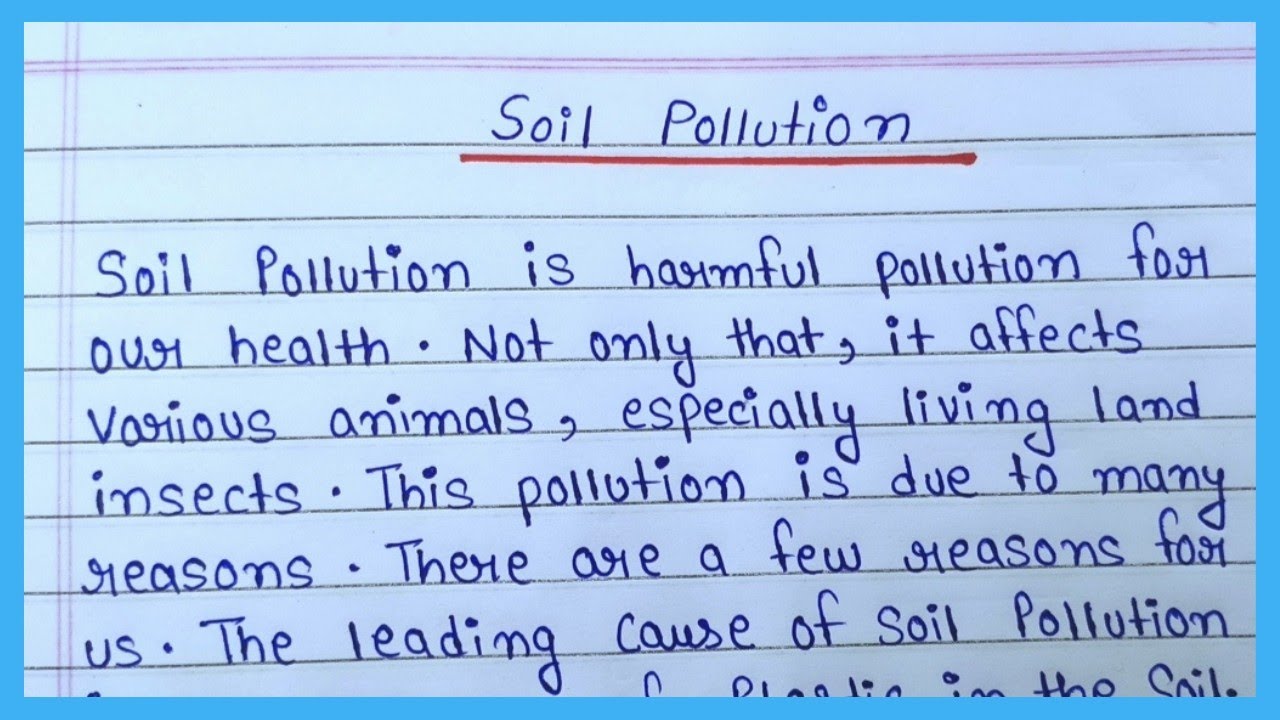 Soil Pollution
Soil Pollution is harmful pollution for
our health. Not only that, it affects
various animals, especially living land
insects. This pollution is due to many
reasons. There are a few reasons for
us. The leading cause of Soil Pollution
in the Soil.